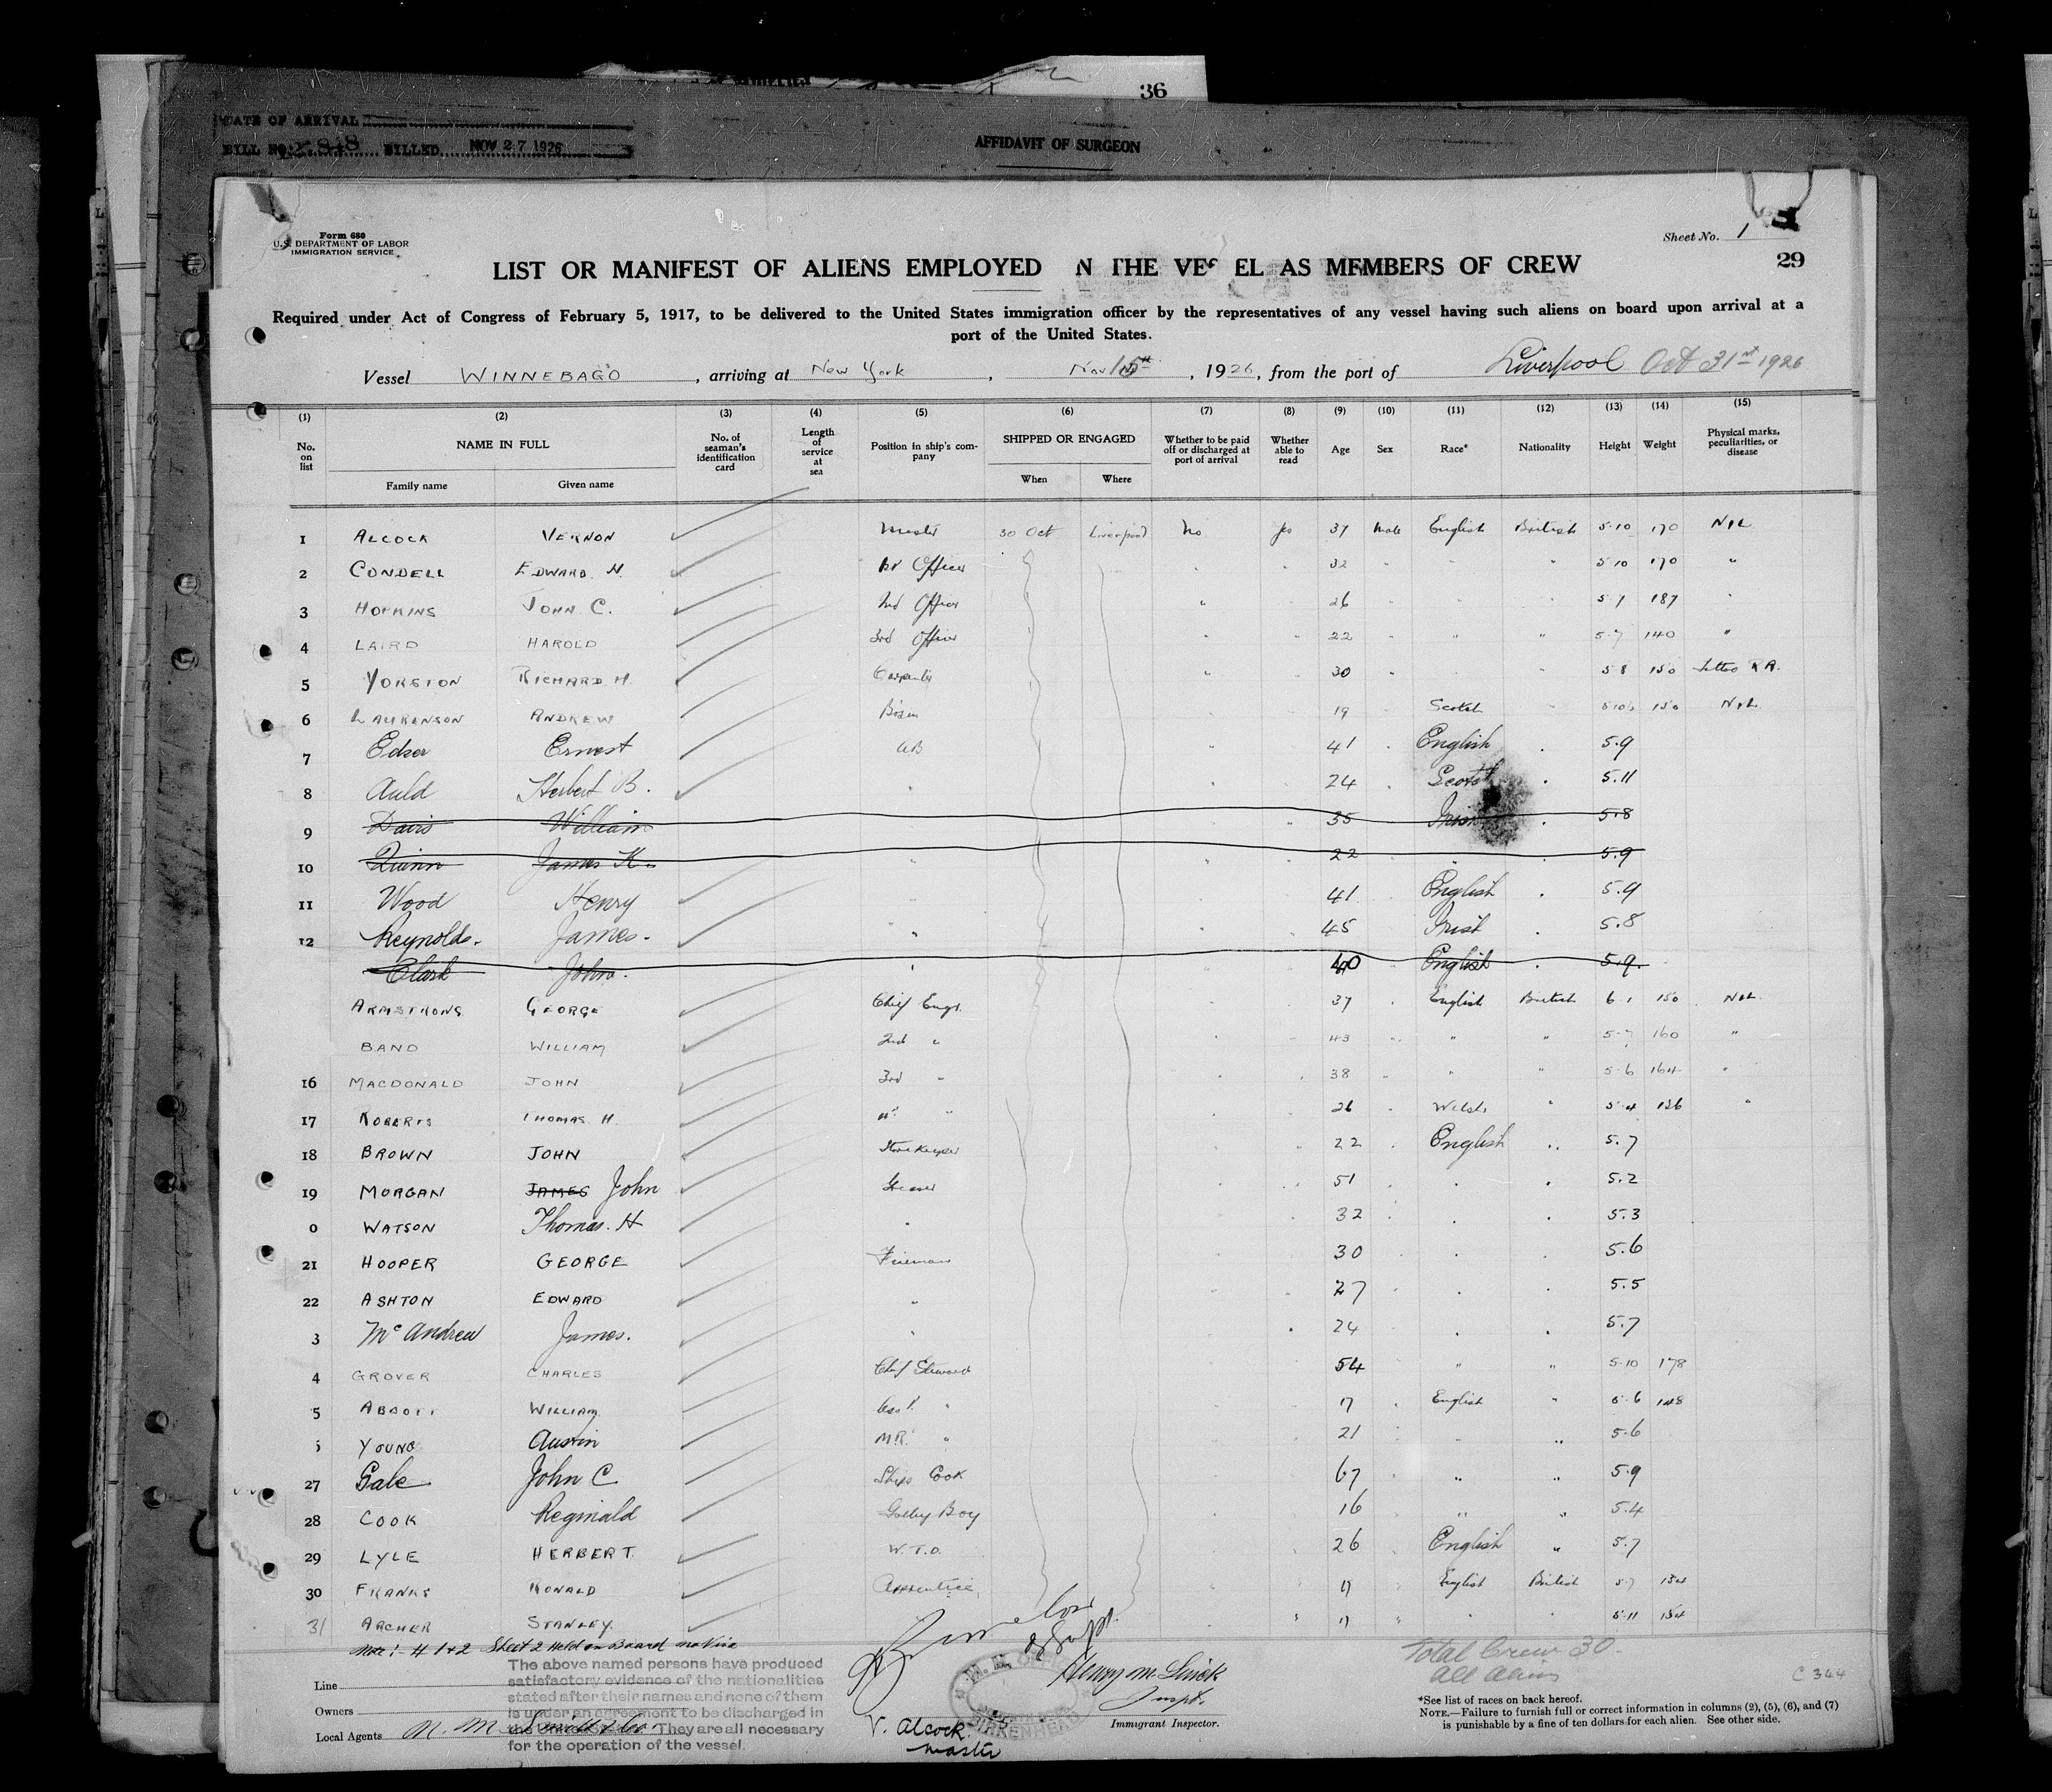 36
DATE OF ARRIVAL
BILL NO. BILLED NOV 27 1926
AFFIDAVIT OF SURGEON
Form 680
U.S. DEPARTMENT OF LABOR
IMMIGRATION SERVICE
Sheet No. 1
29
LIST OR MANIFEST OF ALIENS EMPLOYED N THE VES EL AS MEMBERS OF CREW
Required under Act of Congress of February 5, 1917, to be delivered to the United States immigration officer by the representatives of any vessel having such aliens on board upon arrival at a
port of the United States.
Vessel WINNEBAGO, arriving at New York, Nov 15th, 1926, from the port of Liverpool Oct 31st 1926
(1) (2) (3) (4) (5) (6) (7) (8) (9) (10) (11) (12) (13) (14) (15)
No. on list NAME IN FULL No. of seaman's identification card Length of service at sea Position in ship's company SHIPPED OR ENGAGED Whether to be paid off or discharged at port of arrival Whether able to read Age Sex Race* Nationality Height Weight Physical marks, peculiarities, or disease
Family name Given name When Where
1 ALCOCK VERNON Master 30 Oct Liverpool No Yes 37 Male English British 5-10 170 NIL
2 CONDELL EDWARD H. 1st Officer 32 " " 5-10 170 "
3 HOPKINS JOHN C. 2nd Officer " 26 " " 5-7 187 "
4 LAIRD HAROLD 3rd Officer 22 " " 5-7 140 "
5 YORSTON RICHARD H. Carpenter 30 " 5 8 150 Tattoo R.A.
6 LAURENSON ANDREW Bosun 19 Scotch 5 10½ 150 NIL
7 Edser Ernest AB 41 English 5.9
8 Auld Herbert B. " 24 Scotch 5.11
9 Davis William 35 Irish 5.8
10 Quinn James K. " 22 " 5.9
11 Wood Henry 41 English 5.9
12 Reynolds. James. " 45 Irish 5.8
Clark John. " 40 English 5.9.
ARMSTRONG GEORGE Chief Engr. 37 English British 6.1 150 NIL
BAND WILLIAM 2nd " 43 " " 5-7 160 "
16 MACDONALD JOHN 3rd " 38 " " 5-6 164 "
17 ROBERTS THOMAS H. 4th " 26 Welsh " 5-4 136 "
18 BROWN JOHN Storekeeper 22 English " 5.7
19 MORGAN JAMES John Greaser 51 " " 5.2
0 WATSON Thomas. H " 32 " " 5.3
21 HOOPER GEORGE Fireman 30 " " 5.6
22 ASHTON EDWARD " 27 " " 5.5
3 McAndrew James. " 24 " " 5.7
4 GROVER CHARLES Chief Steward 54 " " 5-10 178
5 ABBOTT WILLIAM Asst. " 17 English " 5-6 148
YOUNG Austin M.R. " 21 " " 5.6
27 Gale John C. Ships Cook 67 " " 5.9
28 COOK Reginald Galley Boy 16 " " 5.4
29 LYLE HERBERT. W.T.O. 26 English " 5.7
30 FRANKS RONALD Apprentice 17 English British 5-7 134
31 ARCHER STANLEY. 17 " " 5-11 154
Note:- # 1 & 2 Sheet 2 Held on Board no Visa
The above named persons have produced
satisfactory evidence of the nationalities
stated after their names and none of them
is under an agreement to be discharged in
They are all necessary
for the operation of the vessel.
Line
Owners
Local Agents
V. Alcock
master
BIRKENHEAD
Inspt.
Immigrant Inspector.
Total Crew 30.
All Aliens
C 344
*See list of races on back hereof.
NOTE.—Failure to furnish full or correct information in columns (2), (5), (6), and (7)
is punishable by a fine of ten dollars for each alien. See other side.